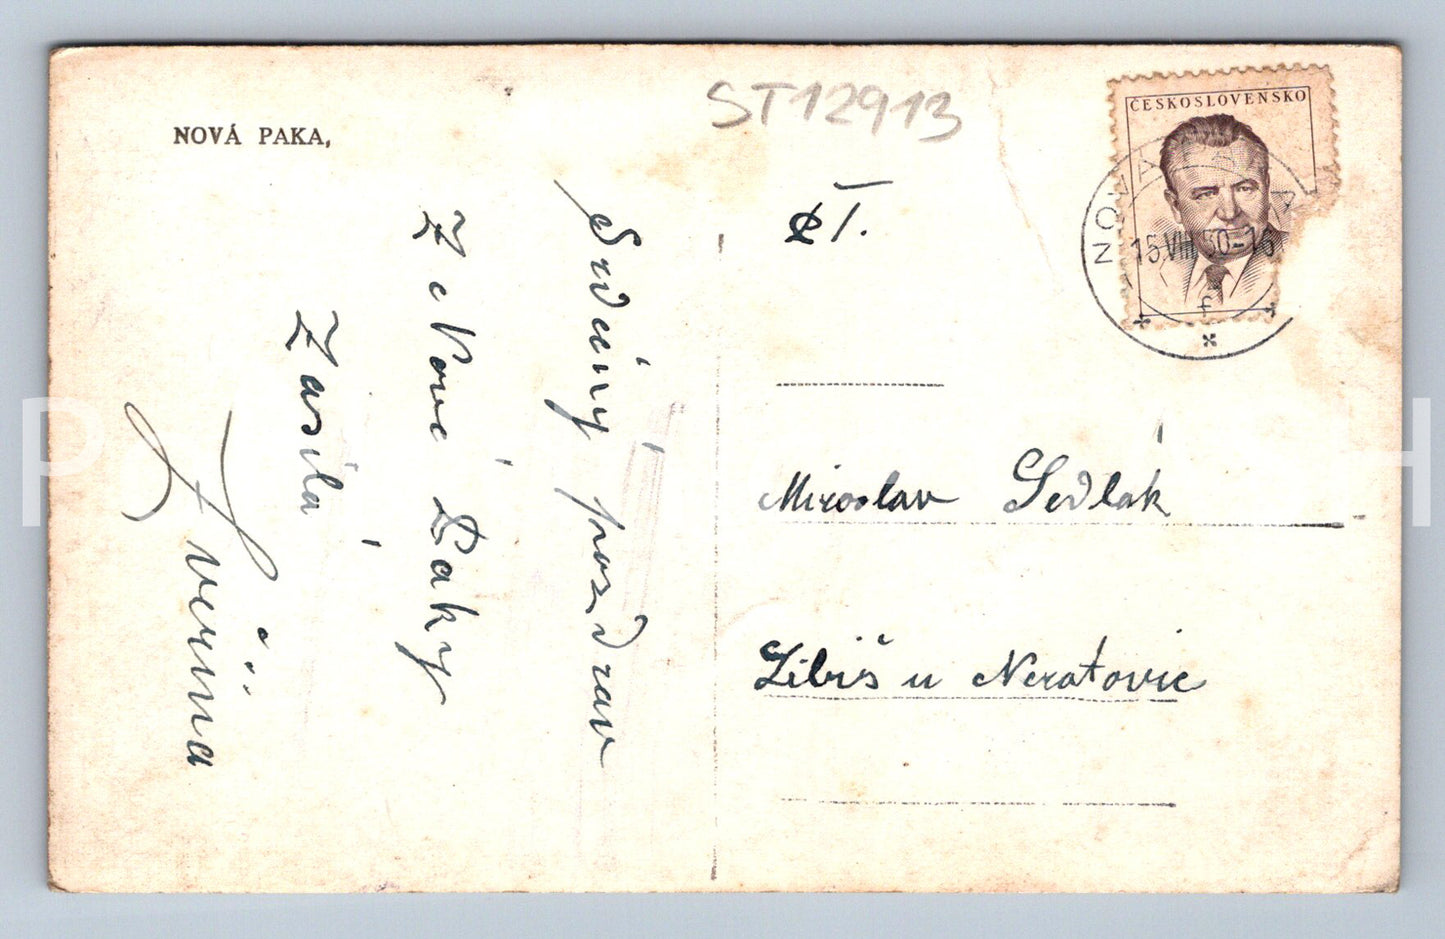 NOVÁ PAKA,
ST12913
ČESKOSLOVENSKO
NOVÁ PAKA
15.VIII.50-16
f
Srdečný pozdrav
Z Nové Paky
Zasílá
Jveřina
Ct.
Miroslav Sedlák
Libiš u Neratovic